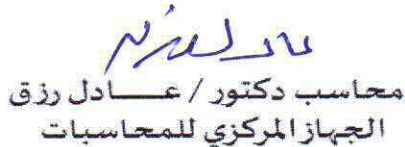 عادل رزق
محاسب دكتور / عـــــادل رزق
الجهاز المركزي للمحاسبات